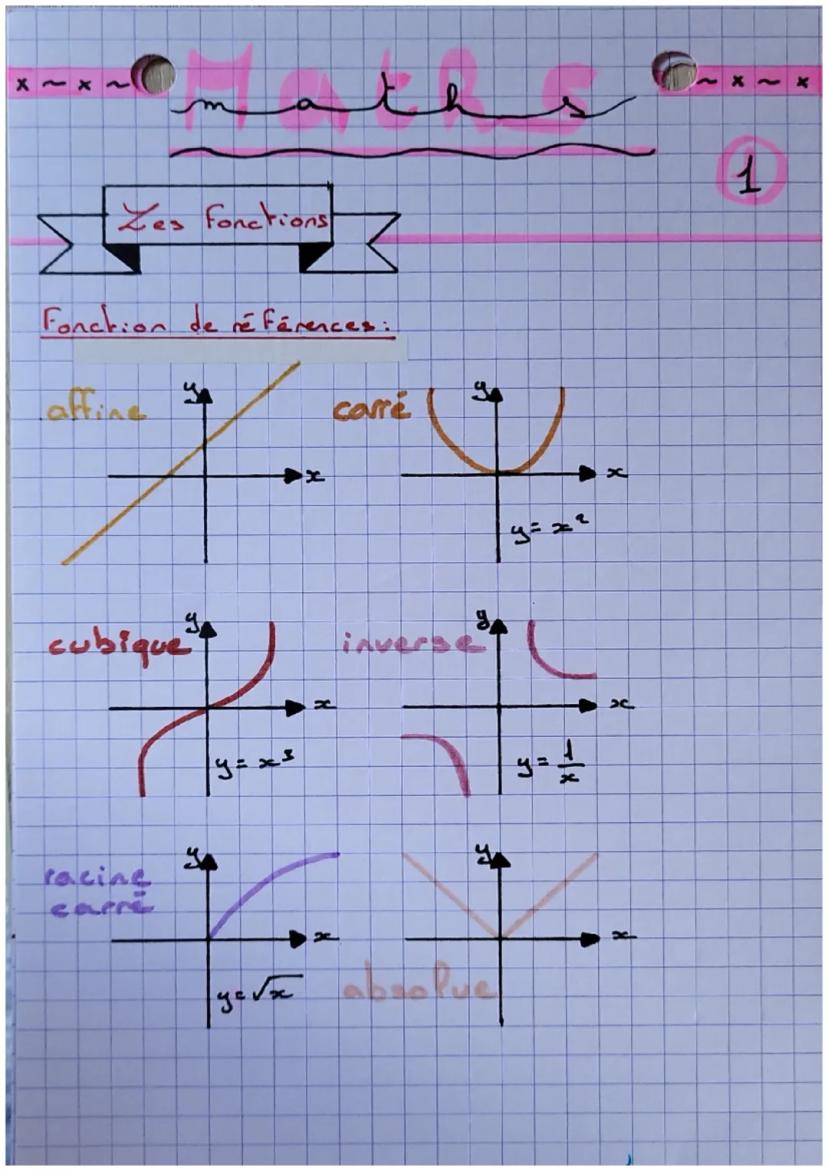 x ~ x ~ Maths ~ x ~ x
maths
1
Les fonctions
Fonction de références:
affine y x
carré y x
y = x²
cubique y x
y = x³
inverse y x
y = 1/x
racine
carré y x
y = √x
absolue y x